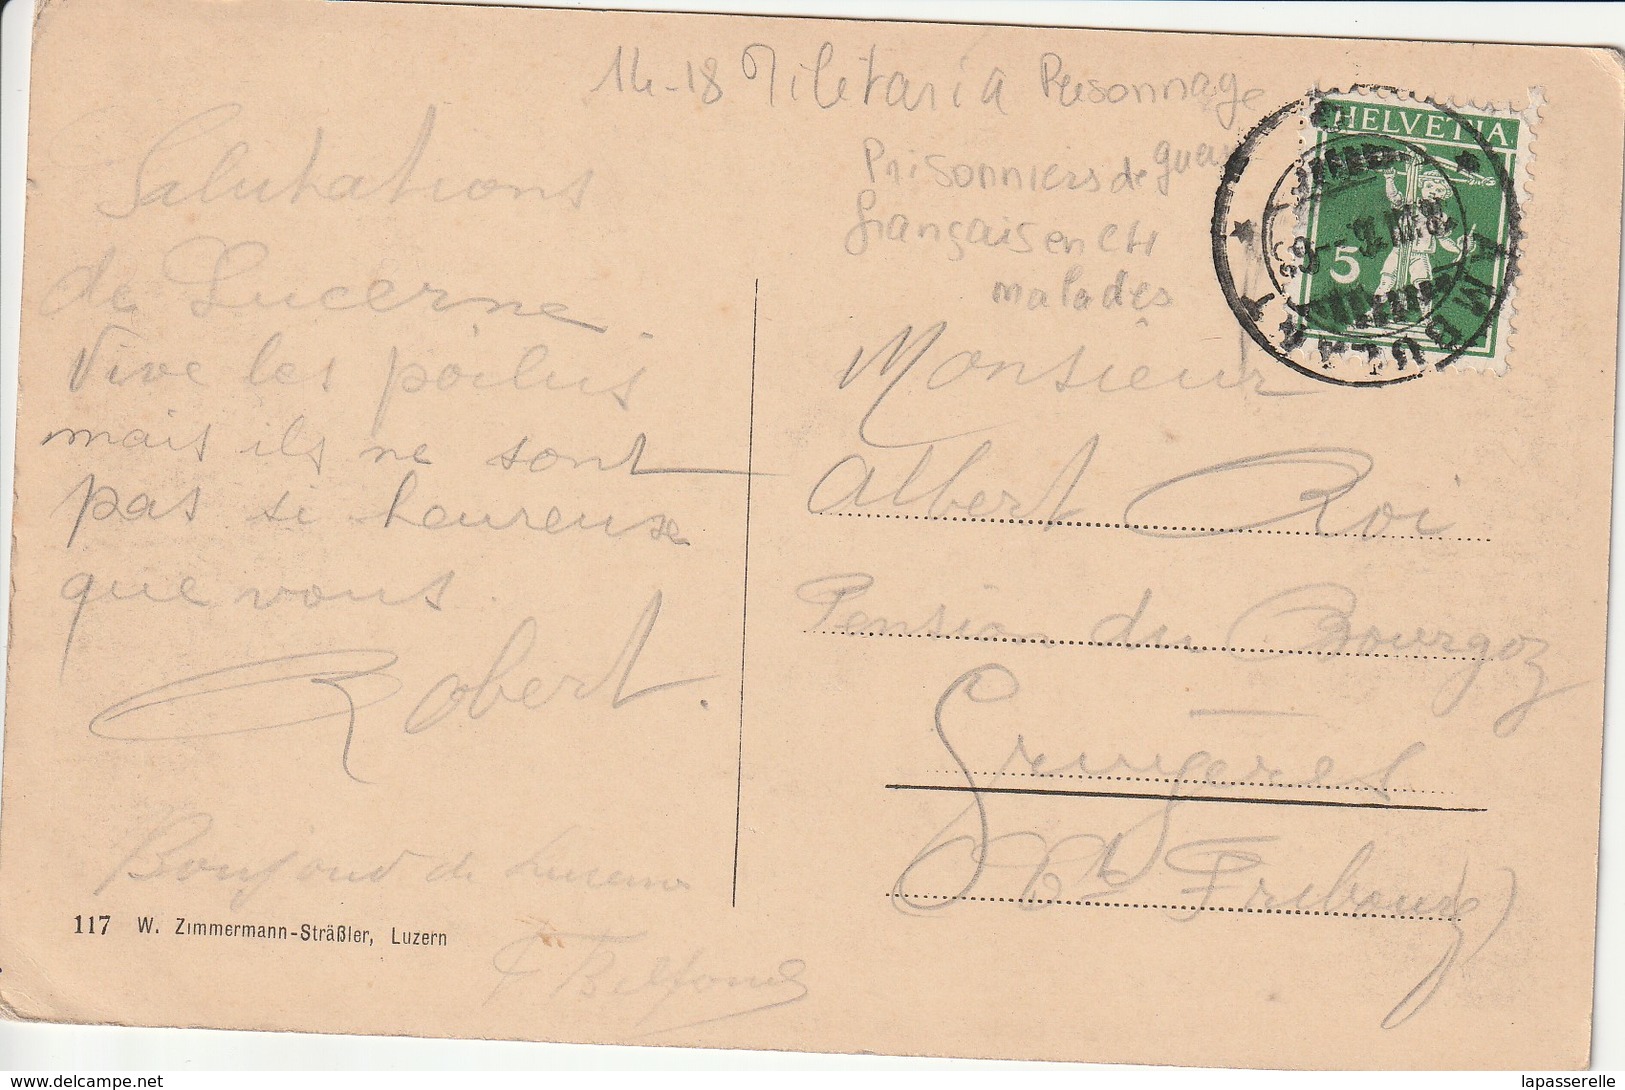 14-18 Militaria Personnage
Prisonniers de guerre
français en CH
malades
HELVETIA
5
AMBULANT
Salutations
de Lucerne.
Vive les poilus
mais ils ne sont
pas si heureuse
que vous.
Robert.
Bonjour de Lucerne
Monsieur
Albert Roi
Pension du Bourgoz
Gruyeres
Ct Fribourg
117 W. Zimmermann-Sträßler, Luzern
www.delcampe.net
lapasserelle